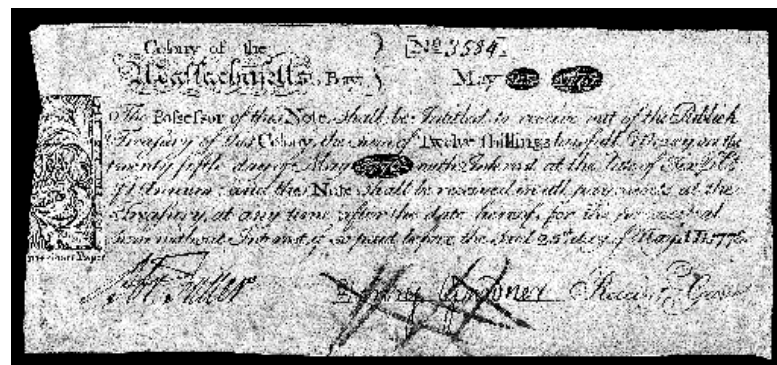 Colony of the
Massachusetts Bay
No 3584.
May 25 1775
The Possessor of this Note, shall be Intitled to receive out of the Publick
Treasury of this Colony, the sum of Twelve Shillings lawfull Money on the
twenty fifth day of May with Interest at the rate of Six
Annum: and this Note shall be received in all payments at the
Treasury, at any time after the date hereof, for the principal
Sum without Interest, if so paid before the said 25th day of May A D 1776.
Fuller
Henry Gardner Receiv. Genr